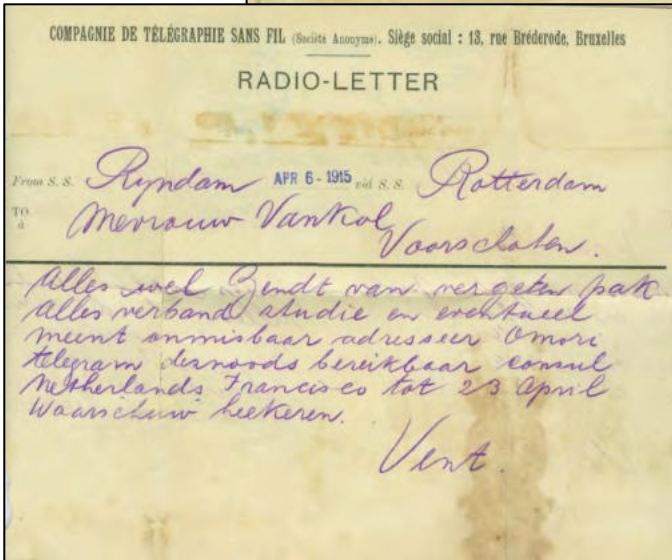 COMPAGNIE DE TÉLÉGRAPHIE SANS FIL (Société Anonyme). Siège social : 13, rue Bréderode, Bruxelles
RADIO-LETTER
From S. S. Ryndam APR 6 - 1915 via S. S. Rotterdam
TO
à Mevrouw VanKol
Voorschoten.
Alles wel Zendt van vergeten pak
alles verband studie en eventueel
meent onmisbaar adresseer Omori
telegram desnoods bereikbaar consul
Netherlands Francisco tot 23 April
Waarschuw heekeren.
Vent.